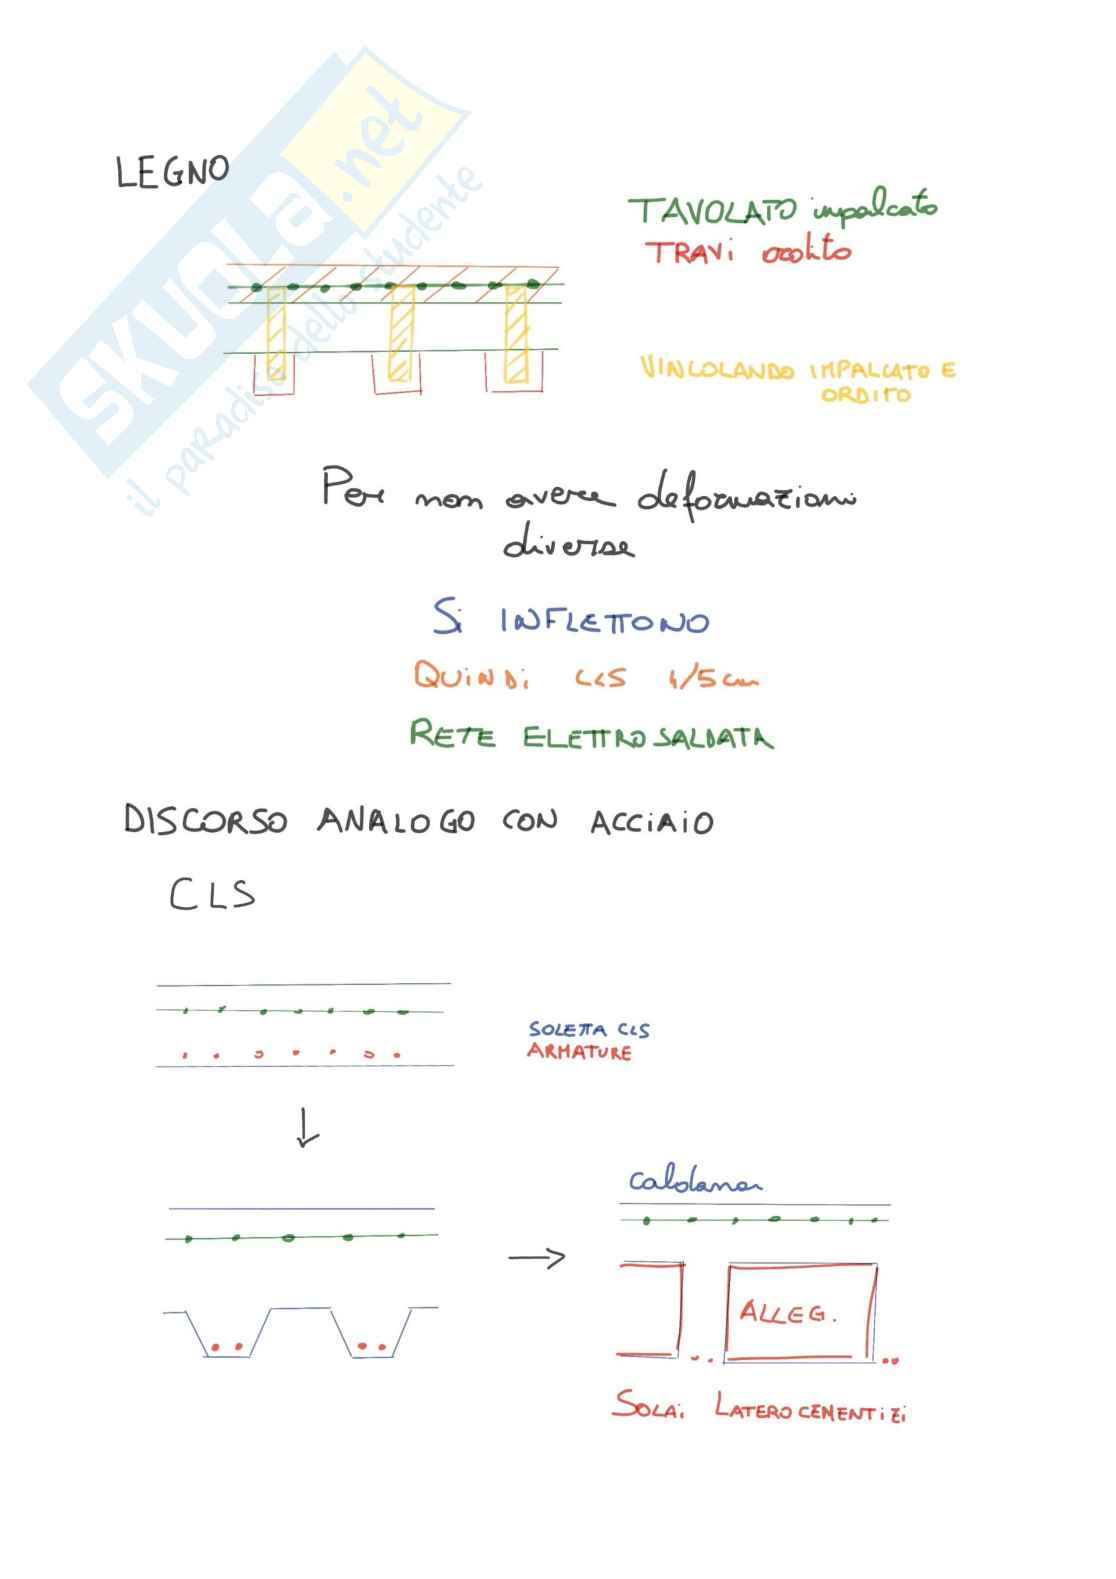 SKUOLA.net
il paradiso dello studente
LEGNO
TAVOLATO impalcato
TRAVi ordito
VINCOLANDO IMPALCATO E
ORDITO
Per non avere deformazioni
diverse
Si INFLETTONO
QUiNDi CLS 4/5 cm
RETE ELETTROSALDATA
DISCORSO ANALOGO CON ACCiAiO
CLS
SOLETTA CLS
ARMATURE
Caldana
ALLEG.
SOLAi LATEROCEMENTiZi